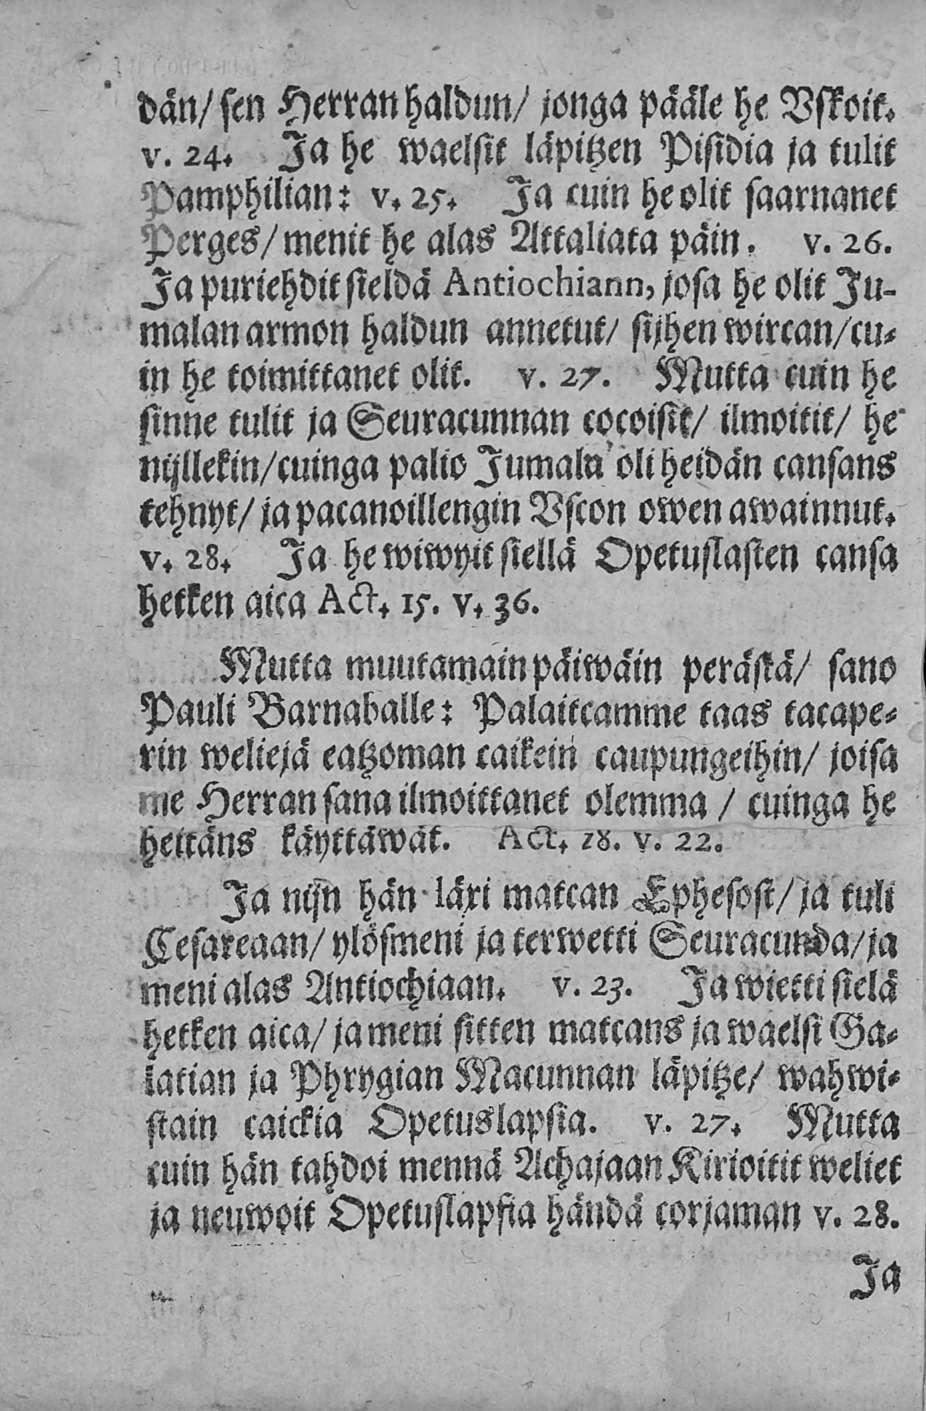 dän/ sen Herran haldun/ jonga pääle he Vskoit.
v. 24. Ja he waelsit läpitzen Pisidia ja tulit
Pamphilian: v. 25. Ja cuin he olit saarnanet
Perges/ menit he alas Attaliata päin. v. 26.
Ja puriehdit sieldä Antiochiann, josa he olit Ju-
malan armon haldun annetut/ sijhen wircan/ cu-
in he toimittanet olit. v. 27. Mutta cuin he
sinne tulit ja Seuracunnan cocoisit/ ilmoitit/ he
nijllekin/ cuinga palio Jumala oli heidän cansans
tehnyt/ ja pacanoillengin Vscon owen awainnut.
v. 28. Ja he wiwyit siellä Opetuslasten cansa
hetken aica Act. 15. v. 36.
Mutta muutamain päiwäin perästä/ sano
Pauli Barnaballe: Palaitcamme taas tacape-
rin weliejä catzoman caikein caupungeihin/ joisa
me Herran sana ilmoittanet olemma / cuinga he
heitäns käyttäwät. Act. 18. v. 22.
Ja nijn hän läxi matcan Ephesost/ ja tuli
Cesareaan/ ylösmeni ja terwetti Seuracunda/ ja
meni alas Antiochiaan. v. 23. Ja wietti sielä
hetken aica/ ja meni sitten matcans ja waelsi Ga-
latian ja Phrygian Macunnan läpitze/ wahwi-
stain caickia Opetuslapsia. v. 27. Mutta
cuin hän tahdoi mennä Achajaan Kirioitit weliet
ja neuwoit Opetuslapsia händä corjaman v. 28.
Ja